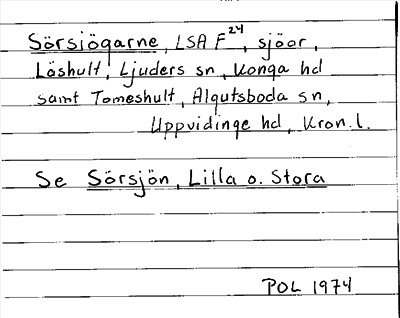 Sörsjögarne, LSA F24, sjöar,
Låshult, Ljuders sn, Konga hd
samt Tomeshult, Algutsboda sn,
Uppvidinge hd, Kron.l.
Se Sörsjön, Lilla o. Stora
POL 1974